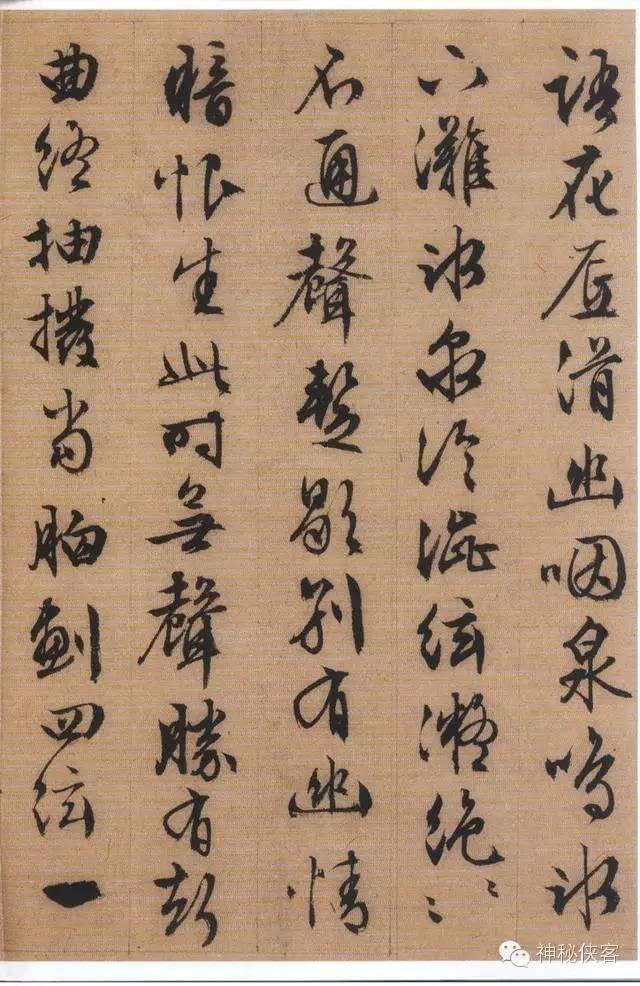 語花底滑幽咽泉鳴冰
下灘冰泉冷澀絃凝絕〻〻
不通聲暫歇別有幽情
暗恨生此時無聲勝有聲
曲終抽撥當胸劃四絃一
神秘侠客